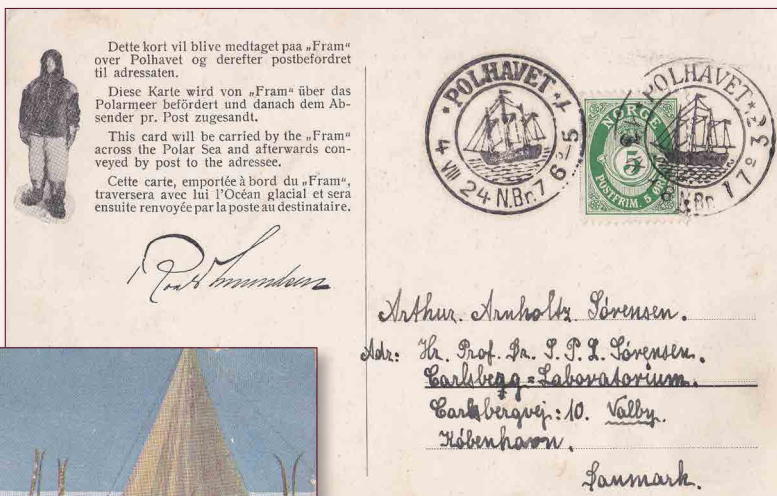 Dette kort vil blive medtaget paa „Fram“
over Polhavet og derefter postbefordret
til adressaten.
Diese Karte wird von „Fram“ über das
Polarmeer befördert und danach dem Ab-
sender pr. Post zugesandt.
This card will be carried by the „Fram“
across the Polar Sea and afterwards con-
veyed by post to the adressee.
Cette carte, emportée à bord du „Fram“,
traversera avec lui l'Océan glacial et sera
ensuite renvoyée par la poste au destinataire.
Roald Amundsen
POLHAVET
4 VIII 24 N.Br. 76
NORGE
5
POSTFRIM. 5 ØRE
POLHAVET
Arthur Arnholtz Sørensen.
Adr: Hr. Prof. Dr. S. P. L. Sörensen.
Carlsberg=Laboratorium.
Carlsbergvej: 10. Valby.
København.
Danmark.